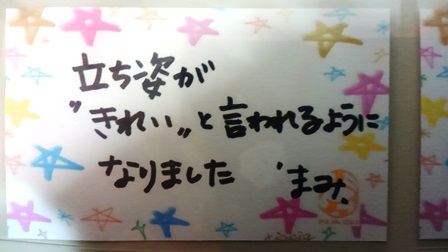 立ち姿が
〝きれい〟と言われるように
なりました 'まみ.